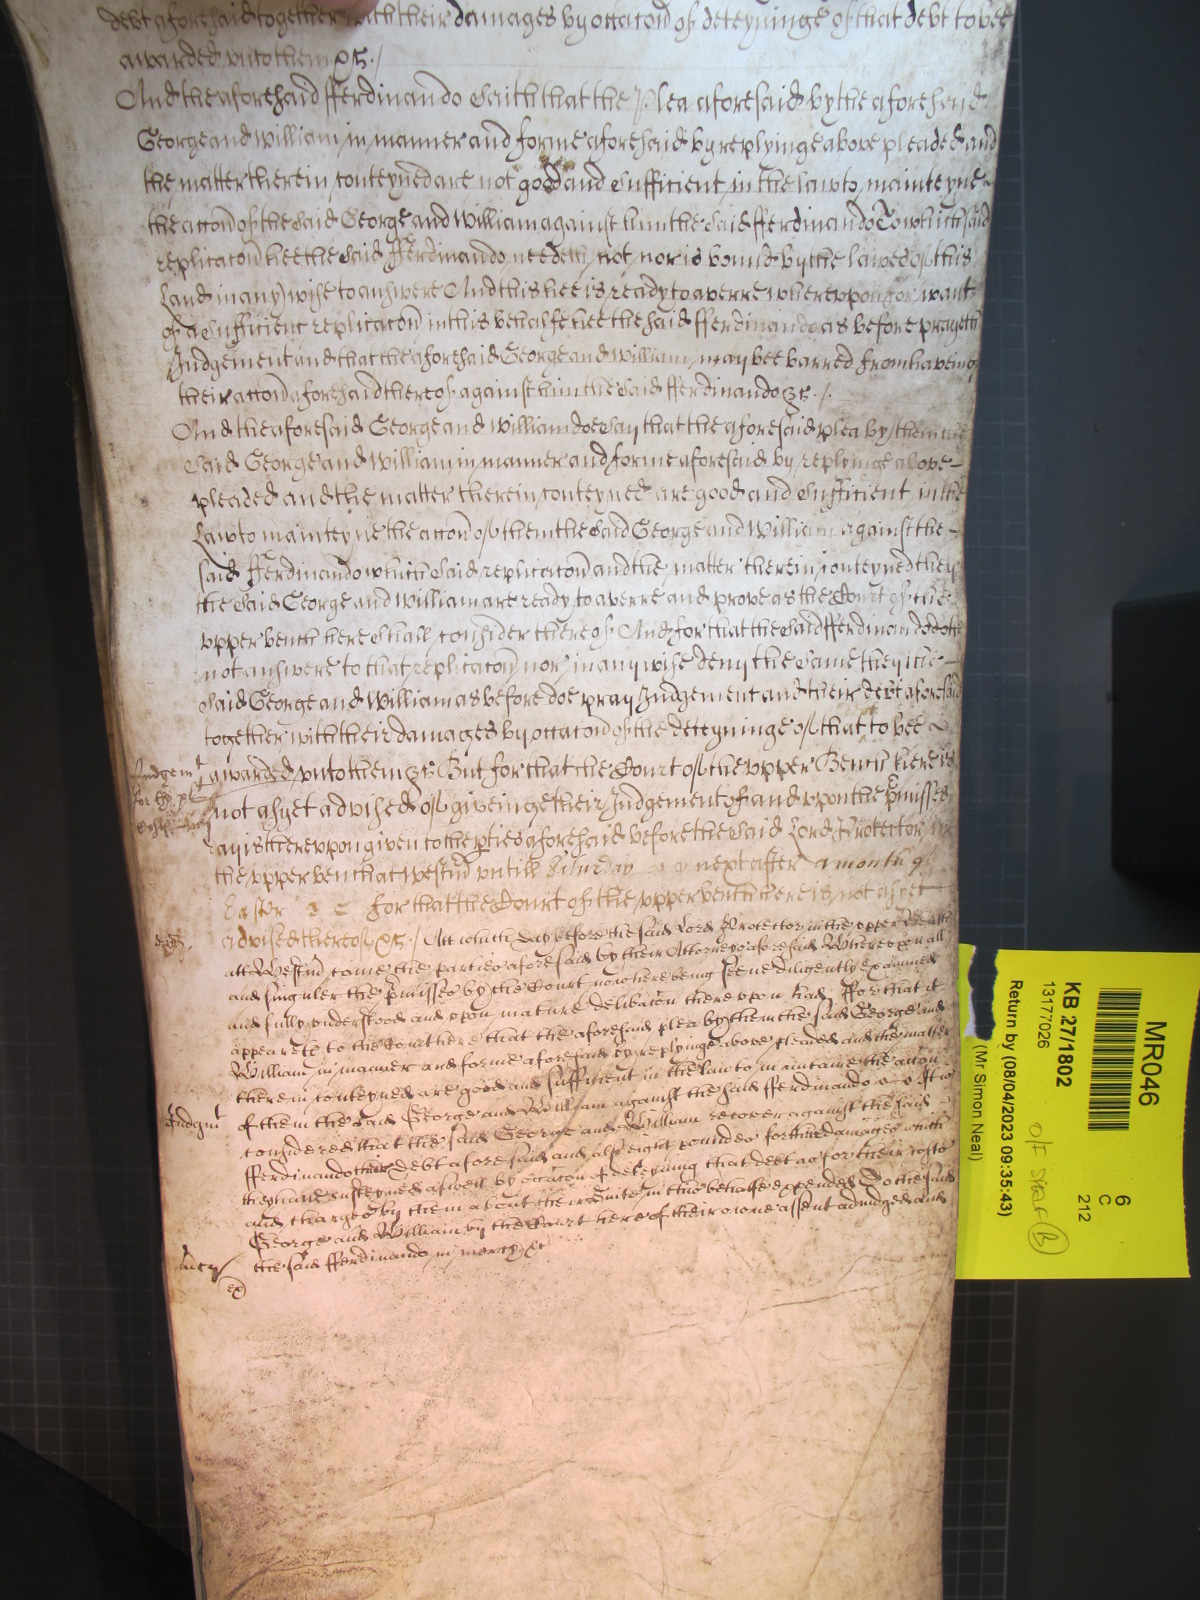 debt aforesaid together with their damages by occacon of deteyninge of that debt to bee
awarded unto them &c./
And the aforesaid Ferdinando saith that the Plea aforesaid by the aforesaid
George and William in manner and forme aforesaid by replyinge above pleaded and
the matter therein conteyned are not good and sufficient in the law to mainteyne
the accon of the said George and William against him the said Ferdinando To which said
replicacon hee the said Ferdinando needeth not nor is bound by the lawes of this
Land in any wise to answere And this hee is ready to averre whereupon for want
of a sufficient replicacon in this behalfe hee the said Ferdinando as before prayeth
Judgement and that the aforesaid George and William may bee barred from haveing
their accon aforesaid thereof against him the said Ferdinando &c./.
And the aforesaid George and William doe say that the aforesaid plea by them the
said George and William in manner and forme aforesaid by replyinge above
pleaded and the matter therein conteyned are good and sufficient in the
Law to mainteyne the accon of them the said George and William against the
said Ferdinando which said replicacon and the matter therein conteyned they
the said George and William are ready to averre and prove as the Court of the
upper bench here shall consider thereof And for that the said Ferdinando doth
not answere to that replicacon nor in any wise deny the same they the
said George and William as before doe pray Judgement and their debt aforesaid
together with their damages by occacon of the deteyninge of that to bee
Judgemt awarded unto them &c But for that the Court of the upper Bench here is
for the pl not as yet advised of giveinge their Judgement of and upon the pmisses
day is thereupon given to the pties aforesaid before the said Lord Protector in
the upper bench at Westm untill Saturday next after a month of
Easter for that the Court of the upper bench here is not as yet
advised thereof &c./ Att which day before the said Lord Protector in the upper Bench
att Westm come the parties aforesaid by their Attorneys aforesaid Whereupon all
and singuler the pmisses by the Court now here being seene diligently examined
and fully understood and upon mature delibacon there upon had For that it
appeareth to the Court here that the aforesaid plea by them the said George and
William in manner and forme aforesaid by replyinge above pleaded and the matter
therein conteyned are good and sufficient in the law to maintaine the accon
of them the said George and William against the said Ferdinando It is
Judgmt considered that the said George and William recover against the said
Ferdinando their debt aforesaid and also eight poundes for their damages which
they have susteyned aswell by occacon of deteyning that debt as for their costs
and charges by them about their suite in this behalfe expended To the said
George and William by the Court here of their owne assent adiudged And
mcy the said Ferdinando in mercy &c
ex
MR046
KB 27/1802
13177026
Return by (08/04/2023 09:35:43)
(Mr Simon Neal)
6
C
212